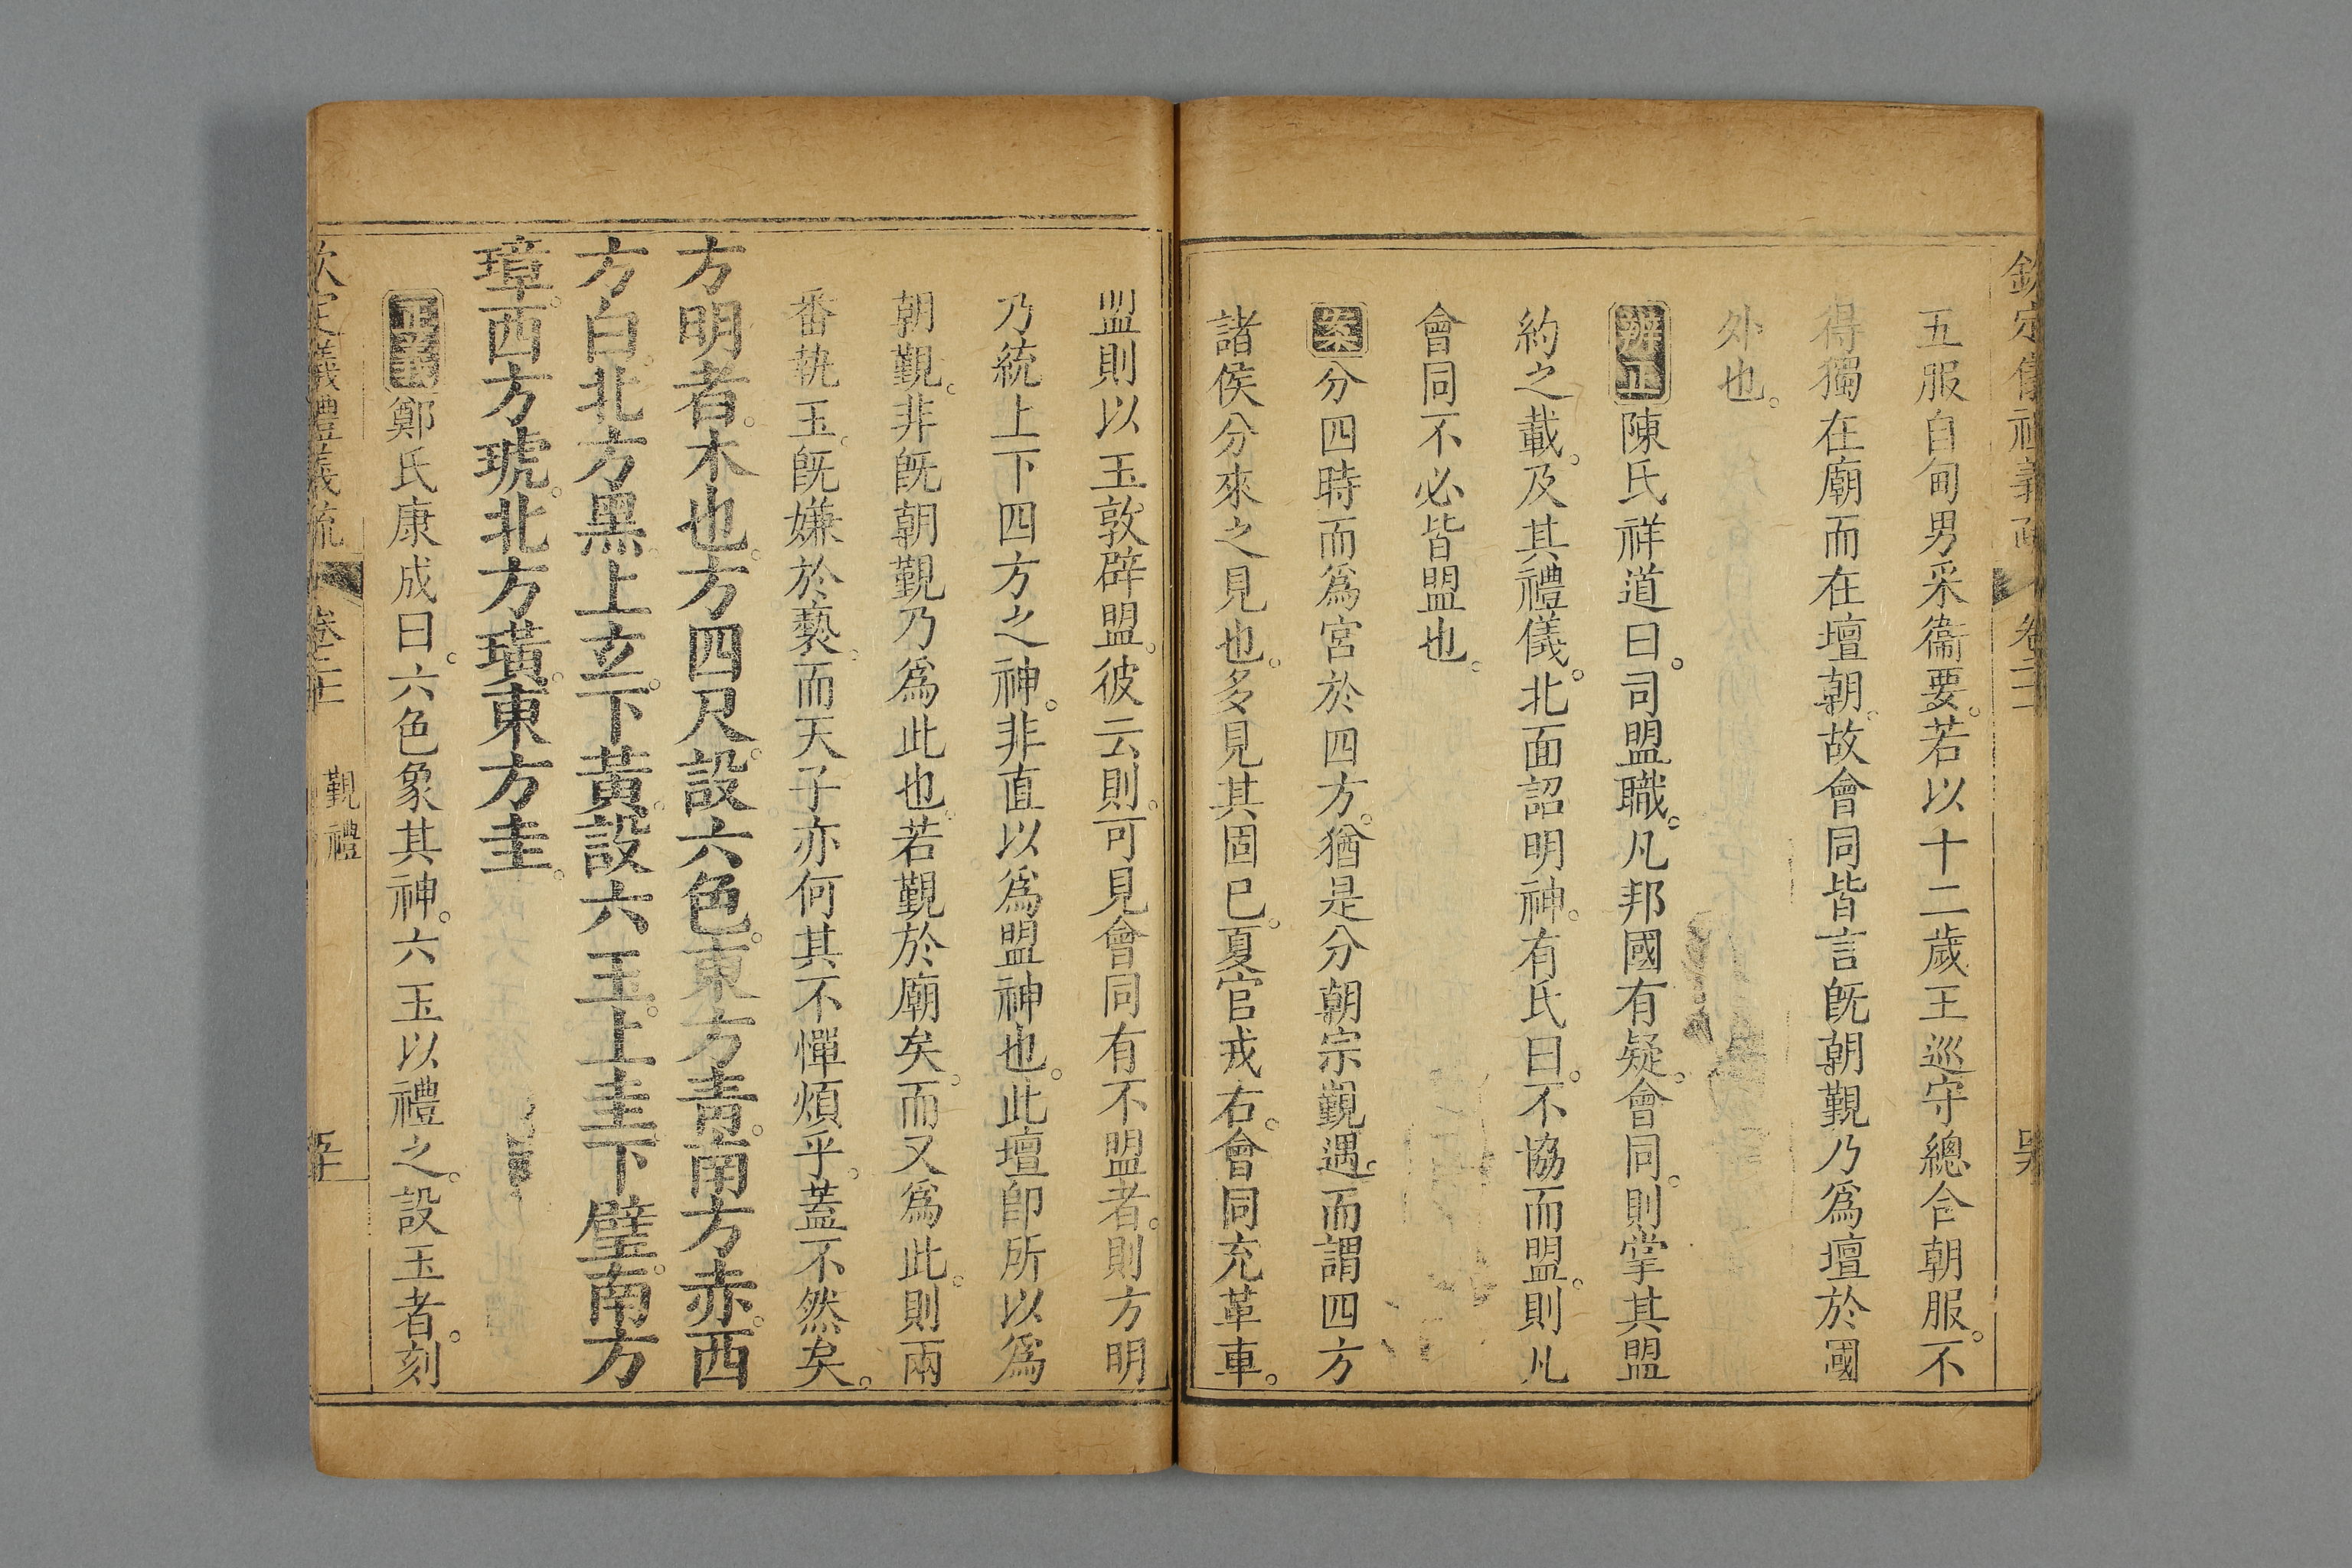 五服自甸男采衞要。若以十二歲王巡守總合朝服。不
得獨在廟而在壇朝。故會同皆言旣朝覲乃爲壇於國
外也。
辨正陳氏祥道曰。司盟職。凡邦國有疑。會同。則掌其盟
約之載。及其禮儀。北面詔明神。有氏曰。不協而盟。則凡
會同不必皆盟也。
案分四時而爲宮於四方。猶是分朝宗覲遇。而謂四方
諸侯分來之見也。多見其固已。夏官戎右。會同充革車。
盟則以玉敦辟盟。彼云則。可見會同有不盟者。則方明
乃統上下四方之神。非直以爲盟神也。此壇卽所以爲
朝覲。非旣朝覲乃爲此也。若覲於廟矣。而又爲此。則兩
番執玉。旣嫌於褻。而天子亦何其不憚煩乎。蓋不然矣。
方明者。木也。方四尺。設六色。東方青。南方赤。西
方白。北方黑。上玄。下黃。設六玉。上圭。下璧。南方
璋。西方琥。北方璜。東方圭。
正義鄭氏康成曰。六色象其神。六玉以禮之。設玉者。刻
欽定儀禮義疏 卷二十 覲禮